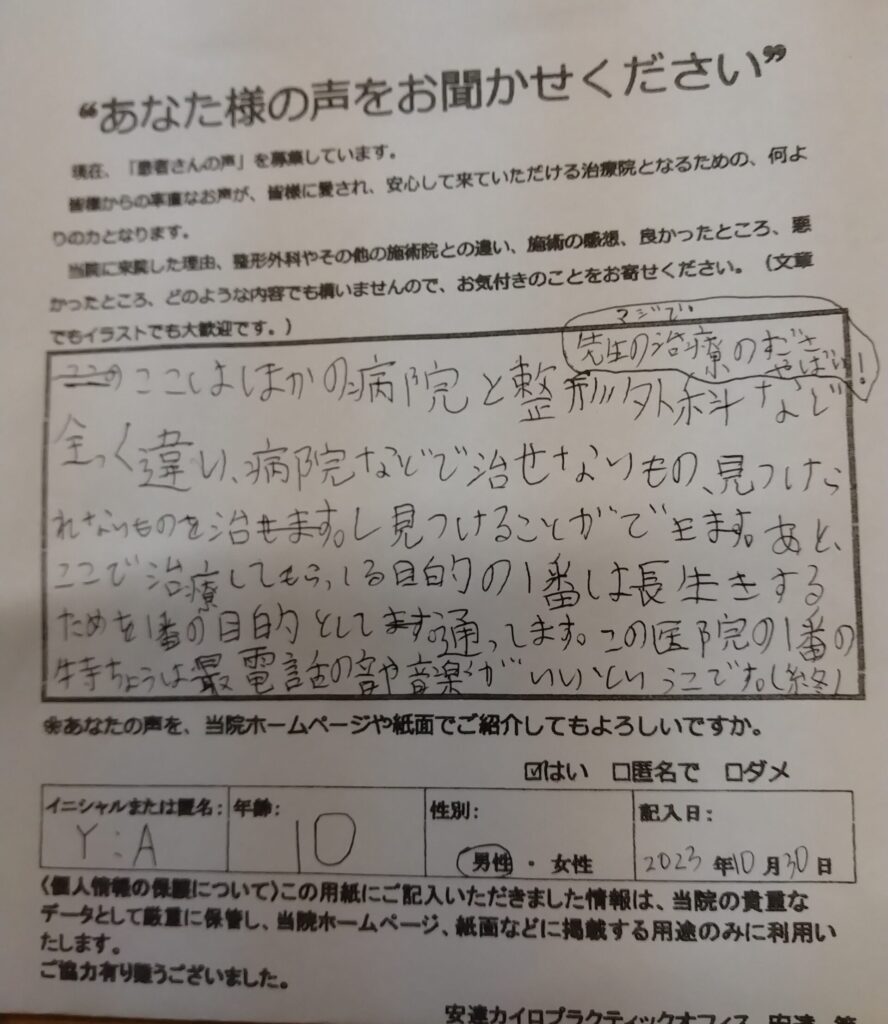 “あなた様の声をお聞かせください”
現在、「患者さんの声」を募集しています。
皆様からの率直なお声が、皆様に愛され、安心して来ていただける治療院となるための、何よ
りの力となります。
当院に来院した理由、整形外科やその他の施術院との違い、施術の感想、良かったところ、悪
かったところ、どのような内容でも構いませんので、お気付きのことをお寄せください。（文章
でもイラストでも大歓迎です。）
マジで
先生の治療のすごさ
やばい!
ここはほかの病院と整形外科など
全っく違い、病院などで治せないもの、見つけら
れないものを治せます。し見つけることができます。あと、
ここで治療してもらっしる目的の1番は長生きする
ためを1番の目的としてます通ってます。この医院の1番の
特ちょうは最電話の音や音楽がいいというこです。(終)
※あなたの声を、当院ホームページや紙面でご紹介してもよろしいですか。
☑はい □匿名で □ダメ
イニシャルまたは匿名: 年齢: 性別: 記入日:
Y:A 10 男性・女性 2023年10月30日
〈個人情報の保護について〉この用紙にご記入いただきました情報は、当院の貴重な
データとして厳重に保管し、当院ホームページ、紙面などに掲載する用途のみに利用い
たします。
ご協力有り難うございました。
安達カイロプラクティックオフィス 安達